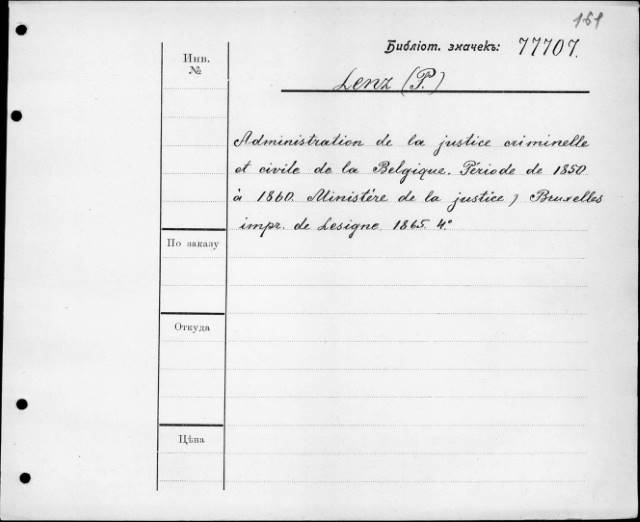 151
Библіот. значекъ: 77707.
Инв.
№
Lenz (P.)
Administration de la justice criminelle
et civile de la Belgique. Période de 1850
à 1860. Ministère de la justice) Bruxelles
impr. de Lesigne. 1865. 4°
По заказу
Откуда
Цѣна